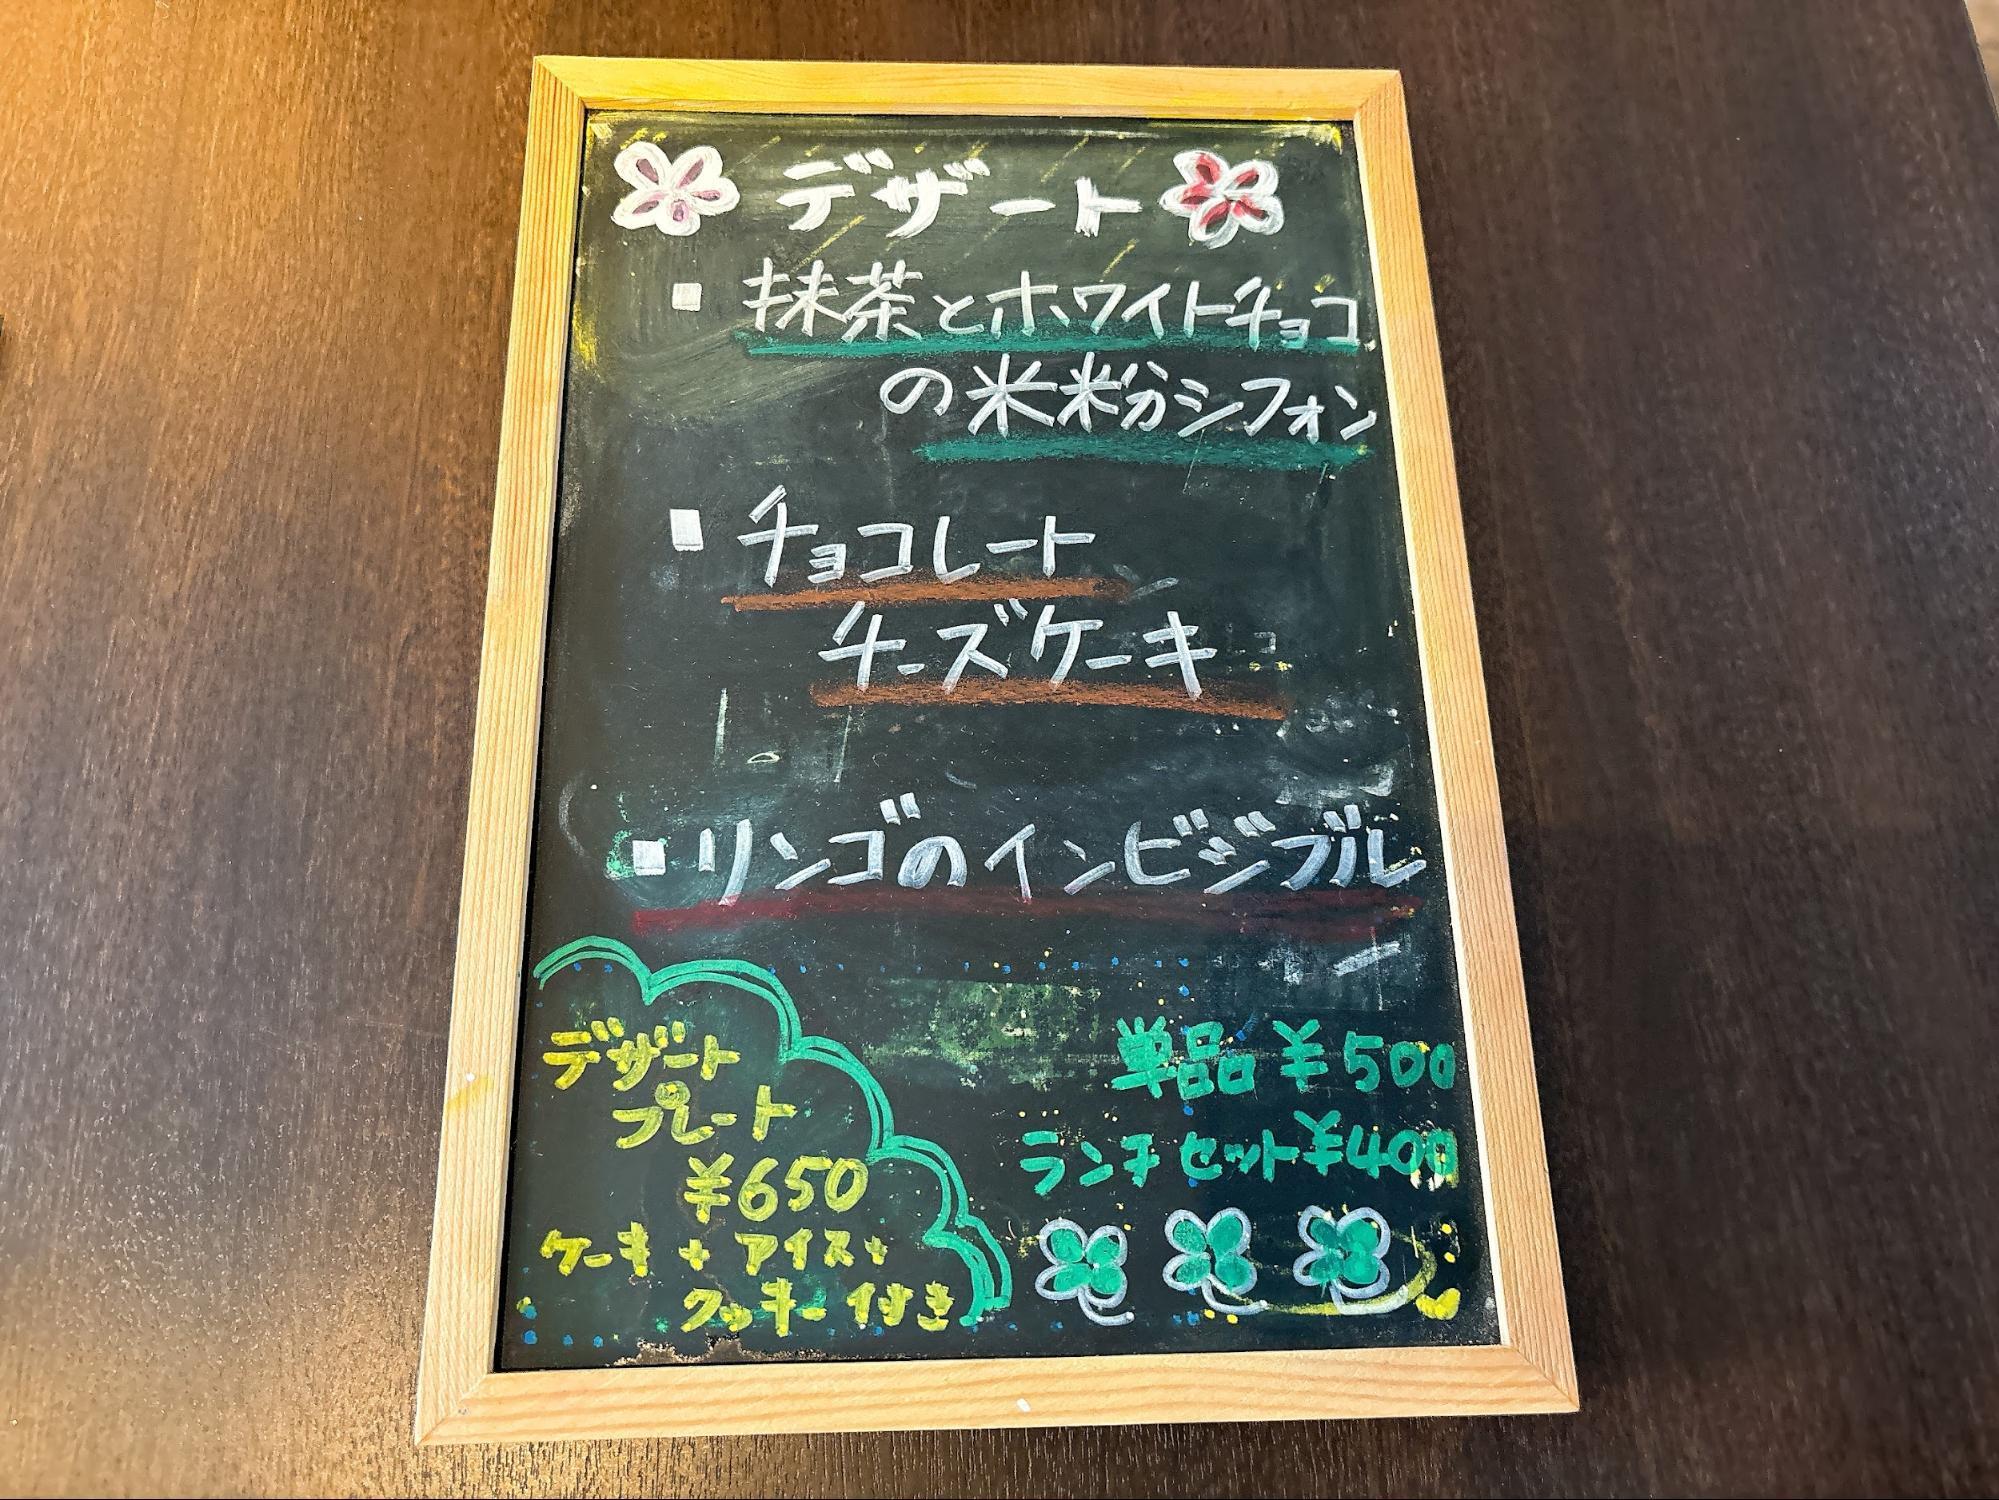 デザート
▪抹茶とホワイトチョコ
の米粉シフォン
▪チョコレート
チーズケーキ
▪リンゴのインビジブル
デザート
プレート
¥650
ケーキ+アイス+
クッキー付き
単品¥500
ランチセット¥400